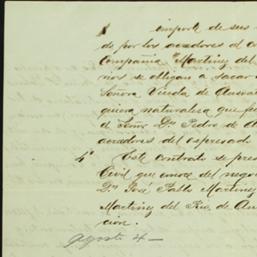 importe de sus
do por los acredores al con
Compañia Martinez del
rios se obligan a sacar
Señora Viuda de
quiera naturaleza que
el Señor Dn. Pedro de
acredores del espresado
4ª Este contrato se pres
Civil que conoce del nego
Dn. José Pablo Martinez
Martinez del Rio, de
cion.
Agosto 4—